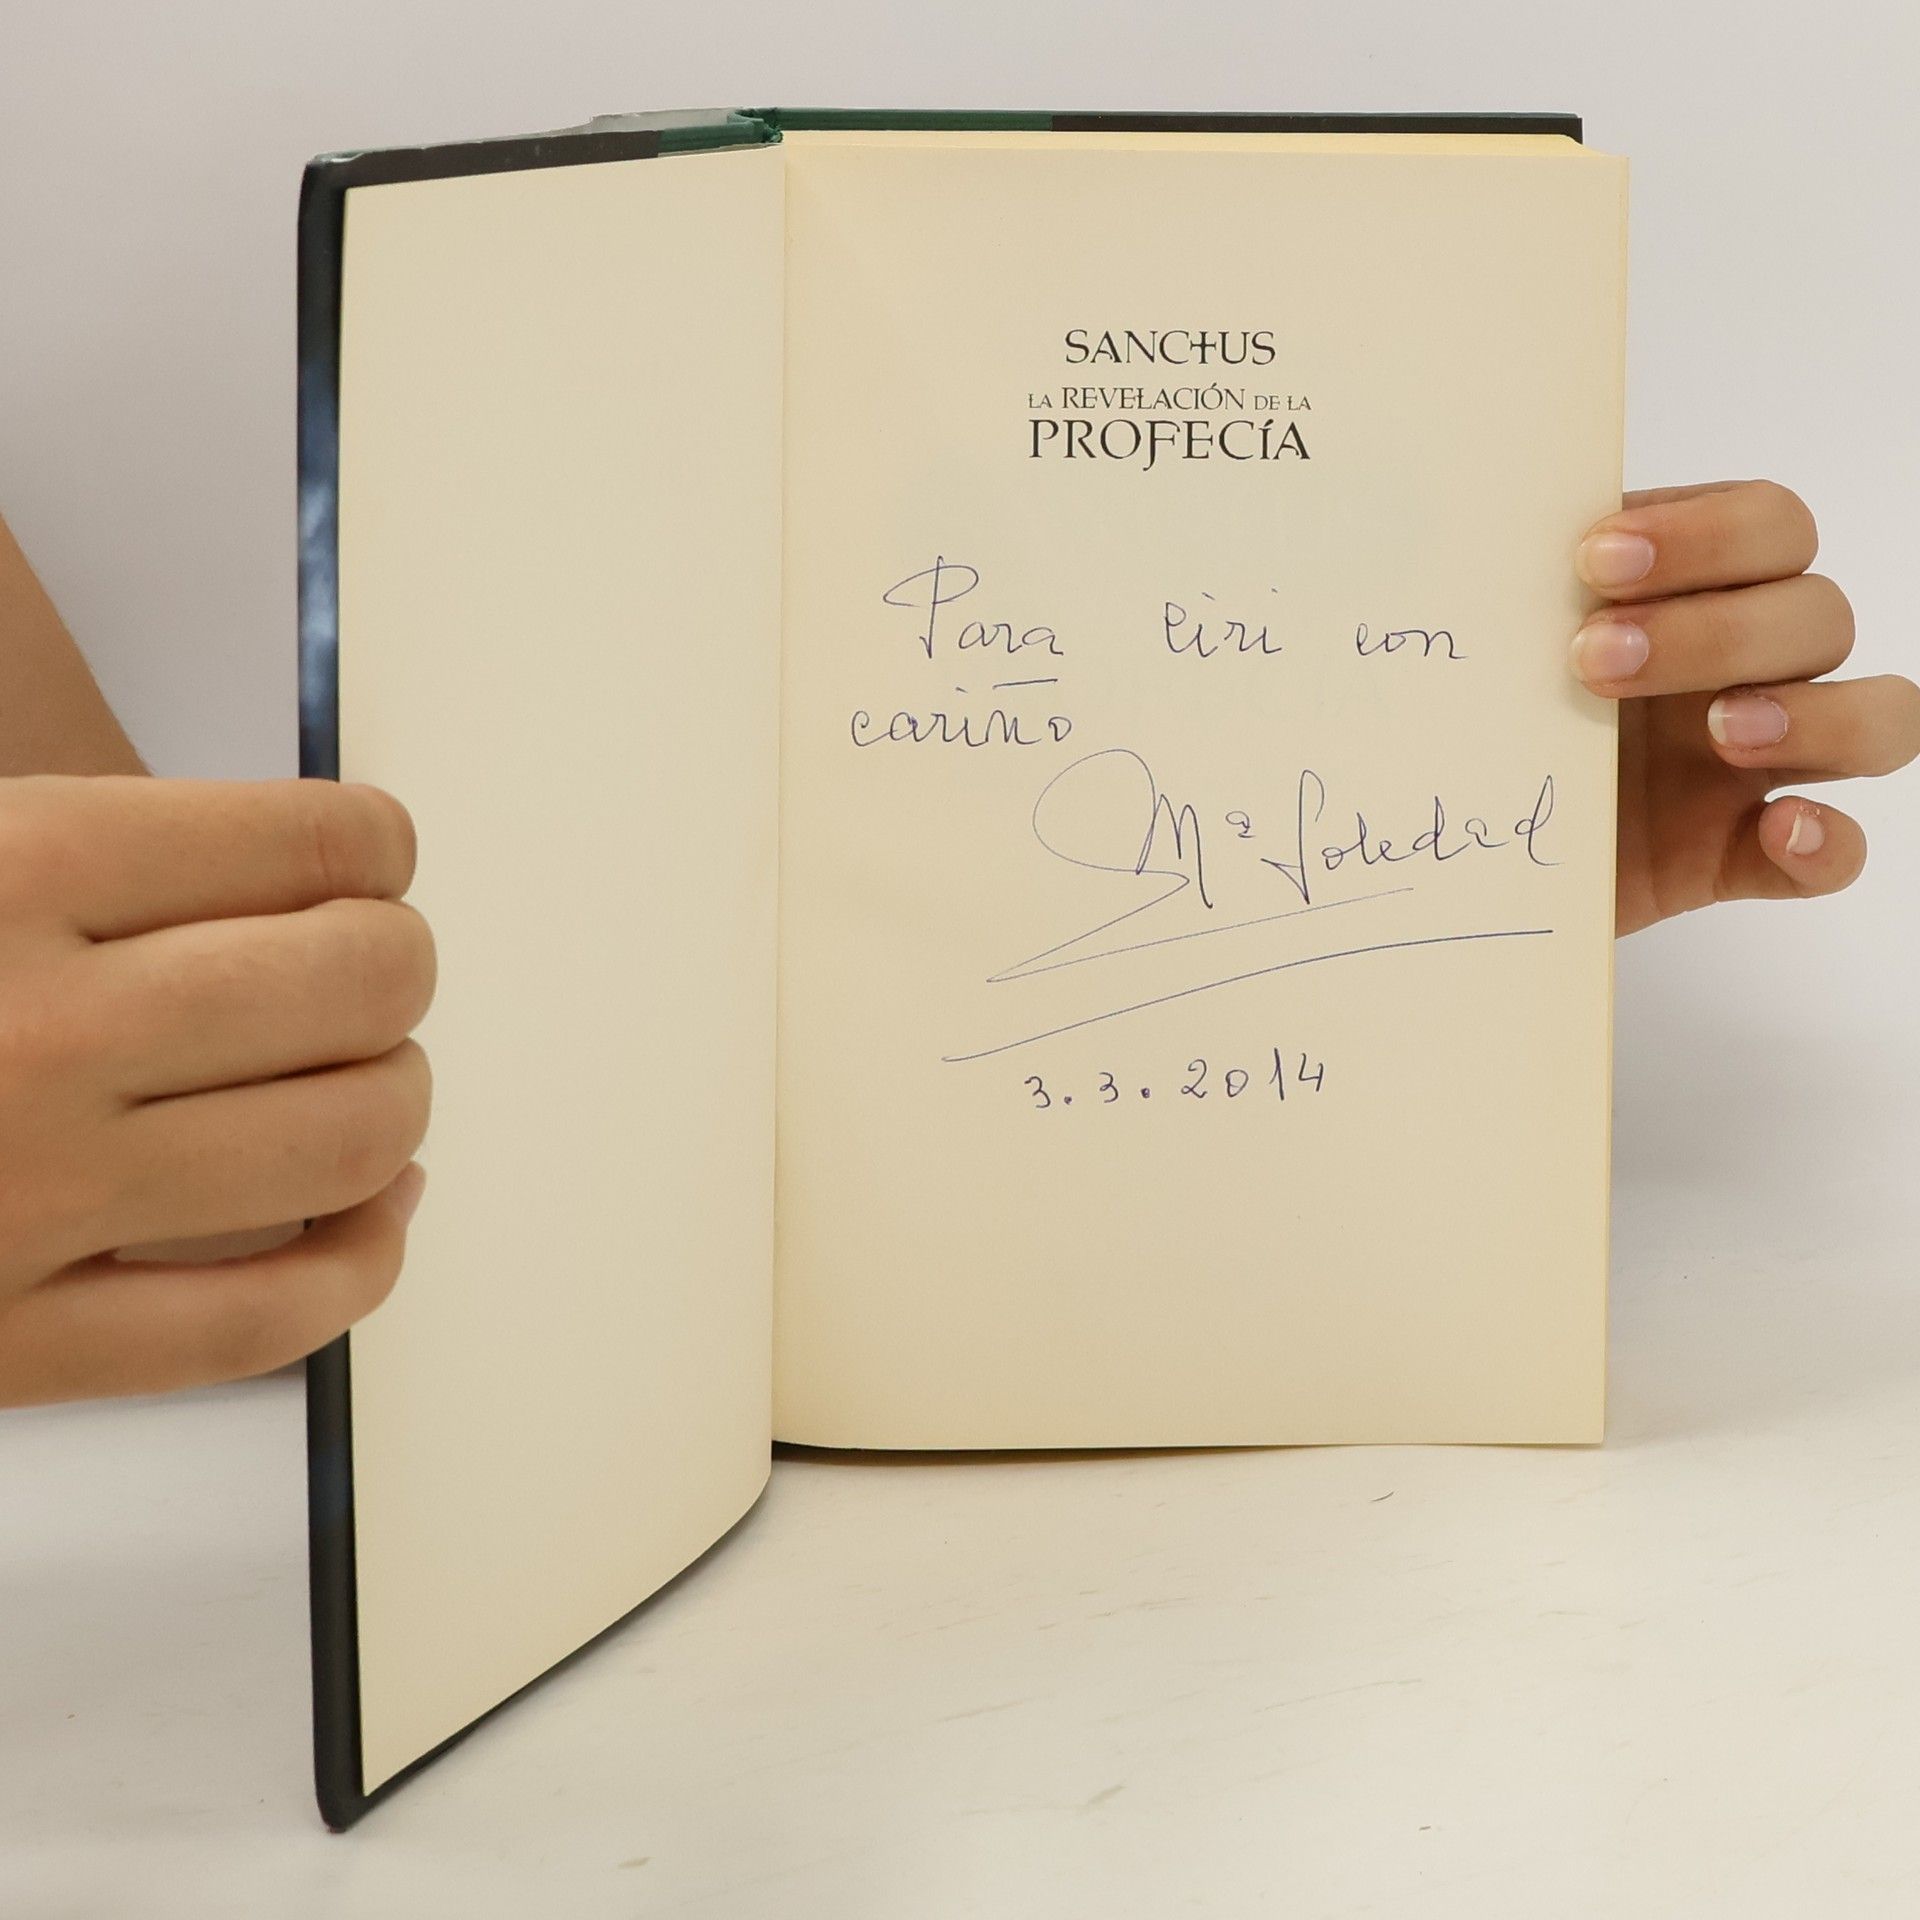 SANCTUS
LA REVELACIÓN DE LA
PROFECÍA
Para Ciri con
cariño
Mª Soledad
3.3.2014